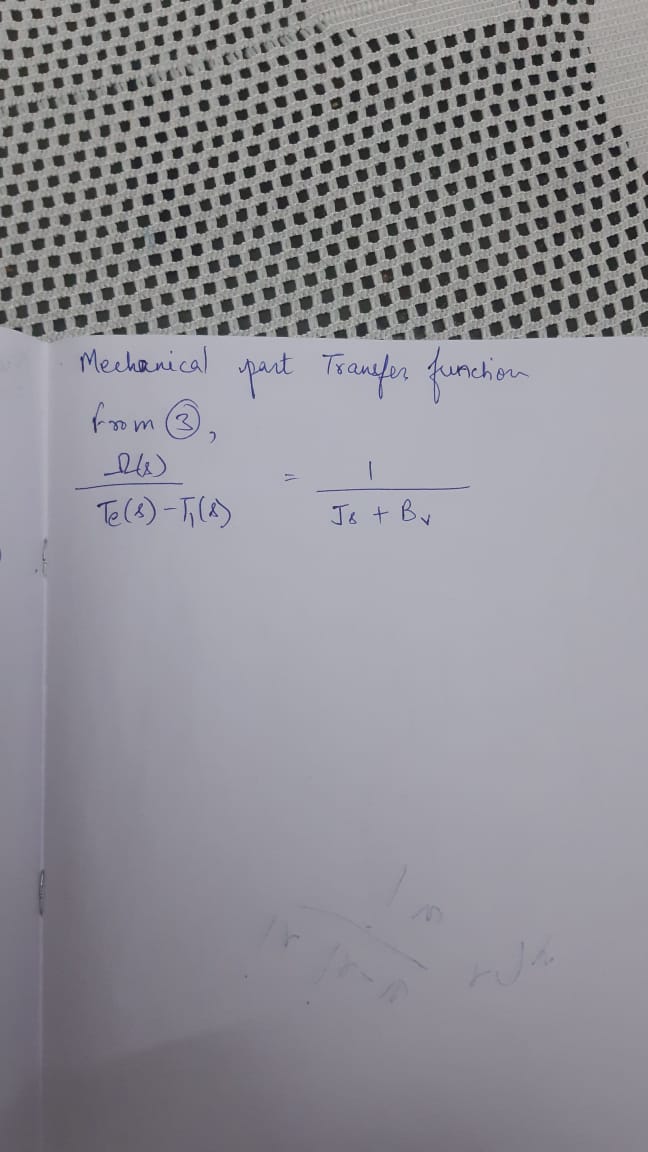 Mechanical part Transfer function
from ③,
Ω(s) / Te(s) - T₁(s) = 1 / Js + Bv